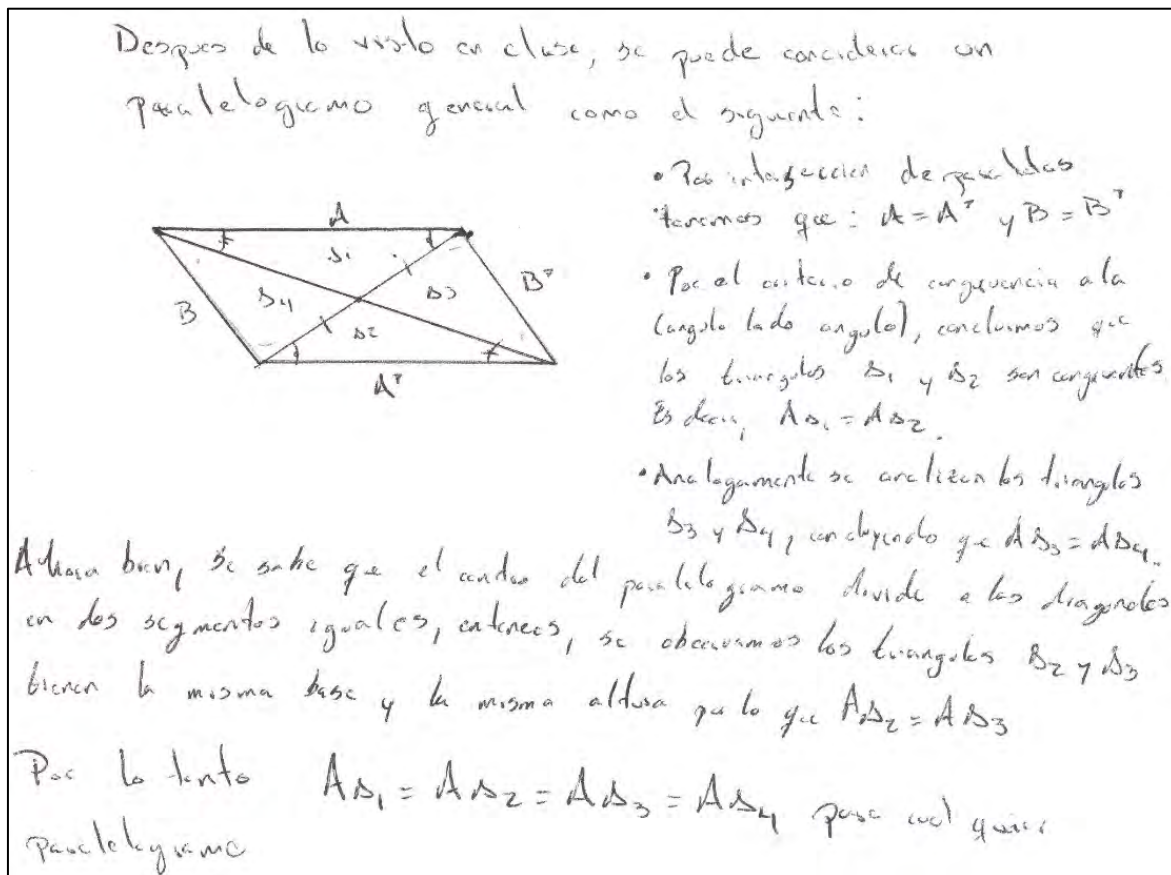 Despues de lo visto en clase, se puede considerar un
paralelogramo general como el siguiente:
• Por intersección de paralelas
tenemos que: A = A' y B = B'
A
Δ1
Δ3
B'
Δ4
B
Δ2
A'
• Por el criterio de congruencia a la
(angulo lado angulo), concluimos que
los triangulos Δ1 y Δ2 son congruentes
Es decir, AΔ1 = AΔ2.
• Analogamente se analizan los triangulos
Δ3 y Δ4, concluyendo que AΔ3 = AΔ4.
Ahora bien, se sabe que el centro del paralelogramo divide a las diagonales
en dos segmentos iguales, entonces, se observamos los triangulos Δ2 y Δ3
tienen la misma base y la misma altura por lo que AΔ2 = AΔ3
Por lo tanto AΔ1 = AΔ2 = AΔ3 = AΔ4 para cualquier
paralelogramo